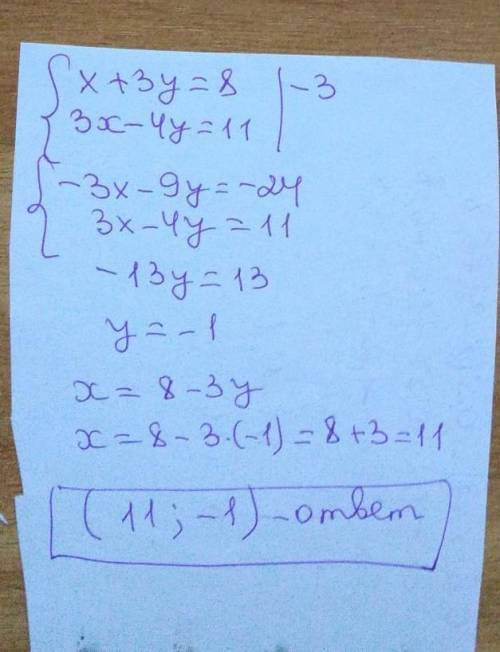 x+3y=8 |-3
3x-4y=11
-3x-9y=-24
3x-4y=11
-13y=13
y=-1
x=8-3y
x=8-3·(-1)=8+3=11
(11;-1)-ответ